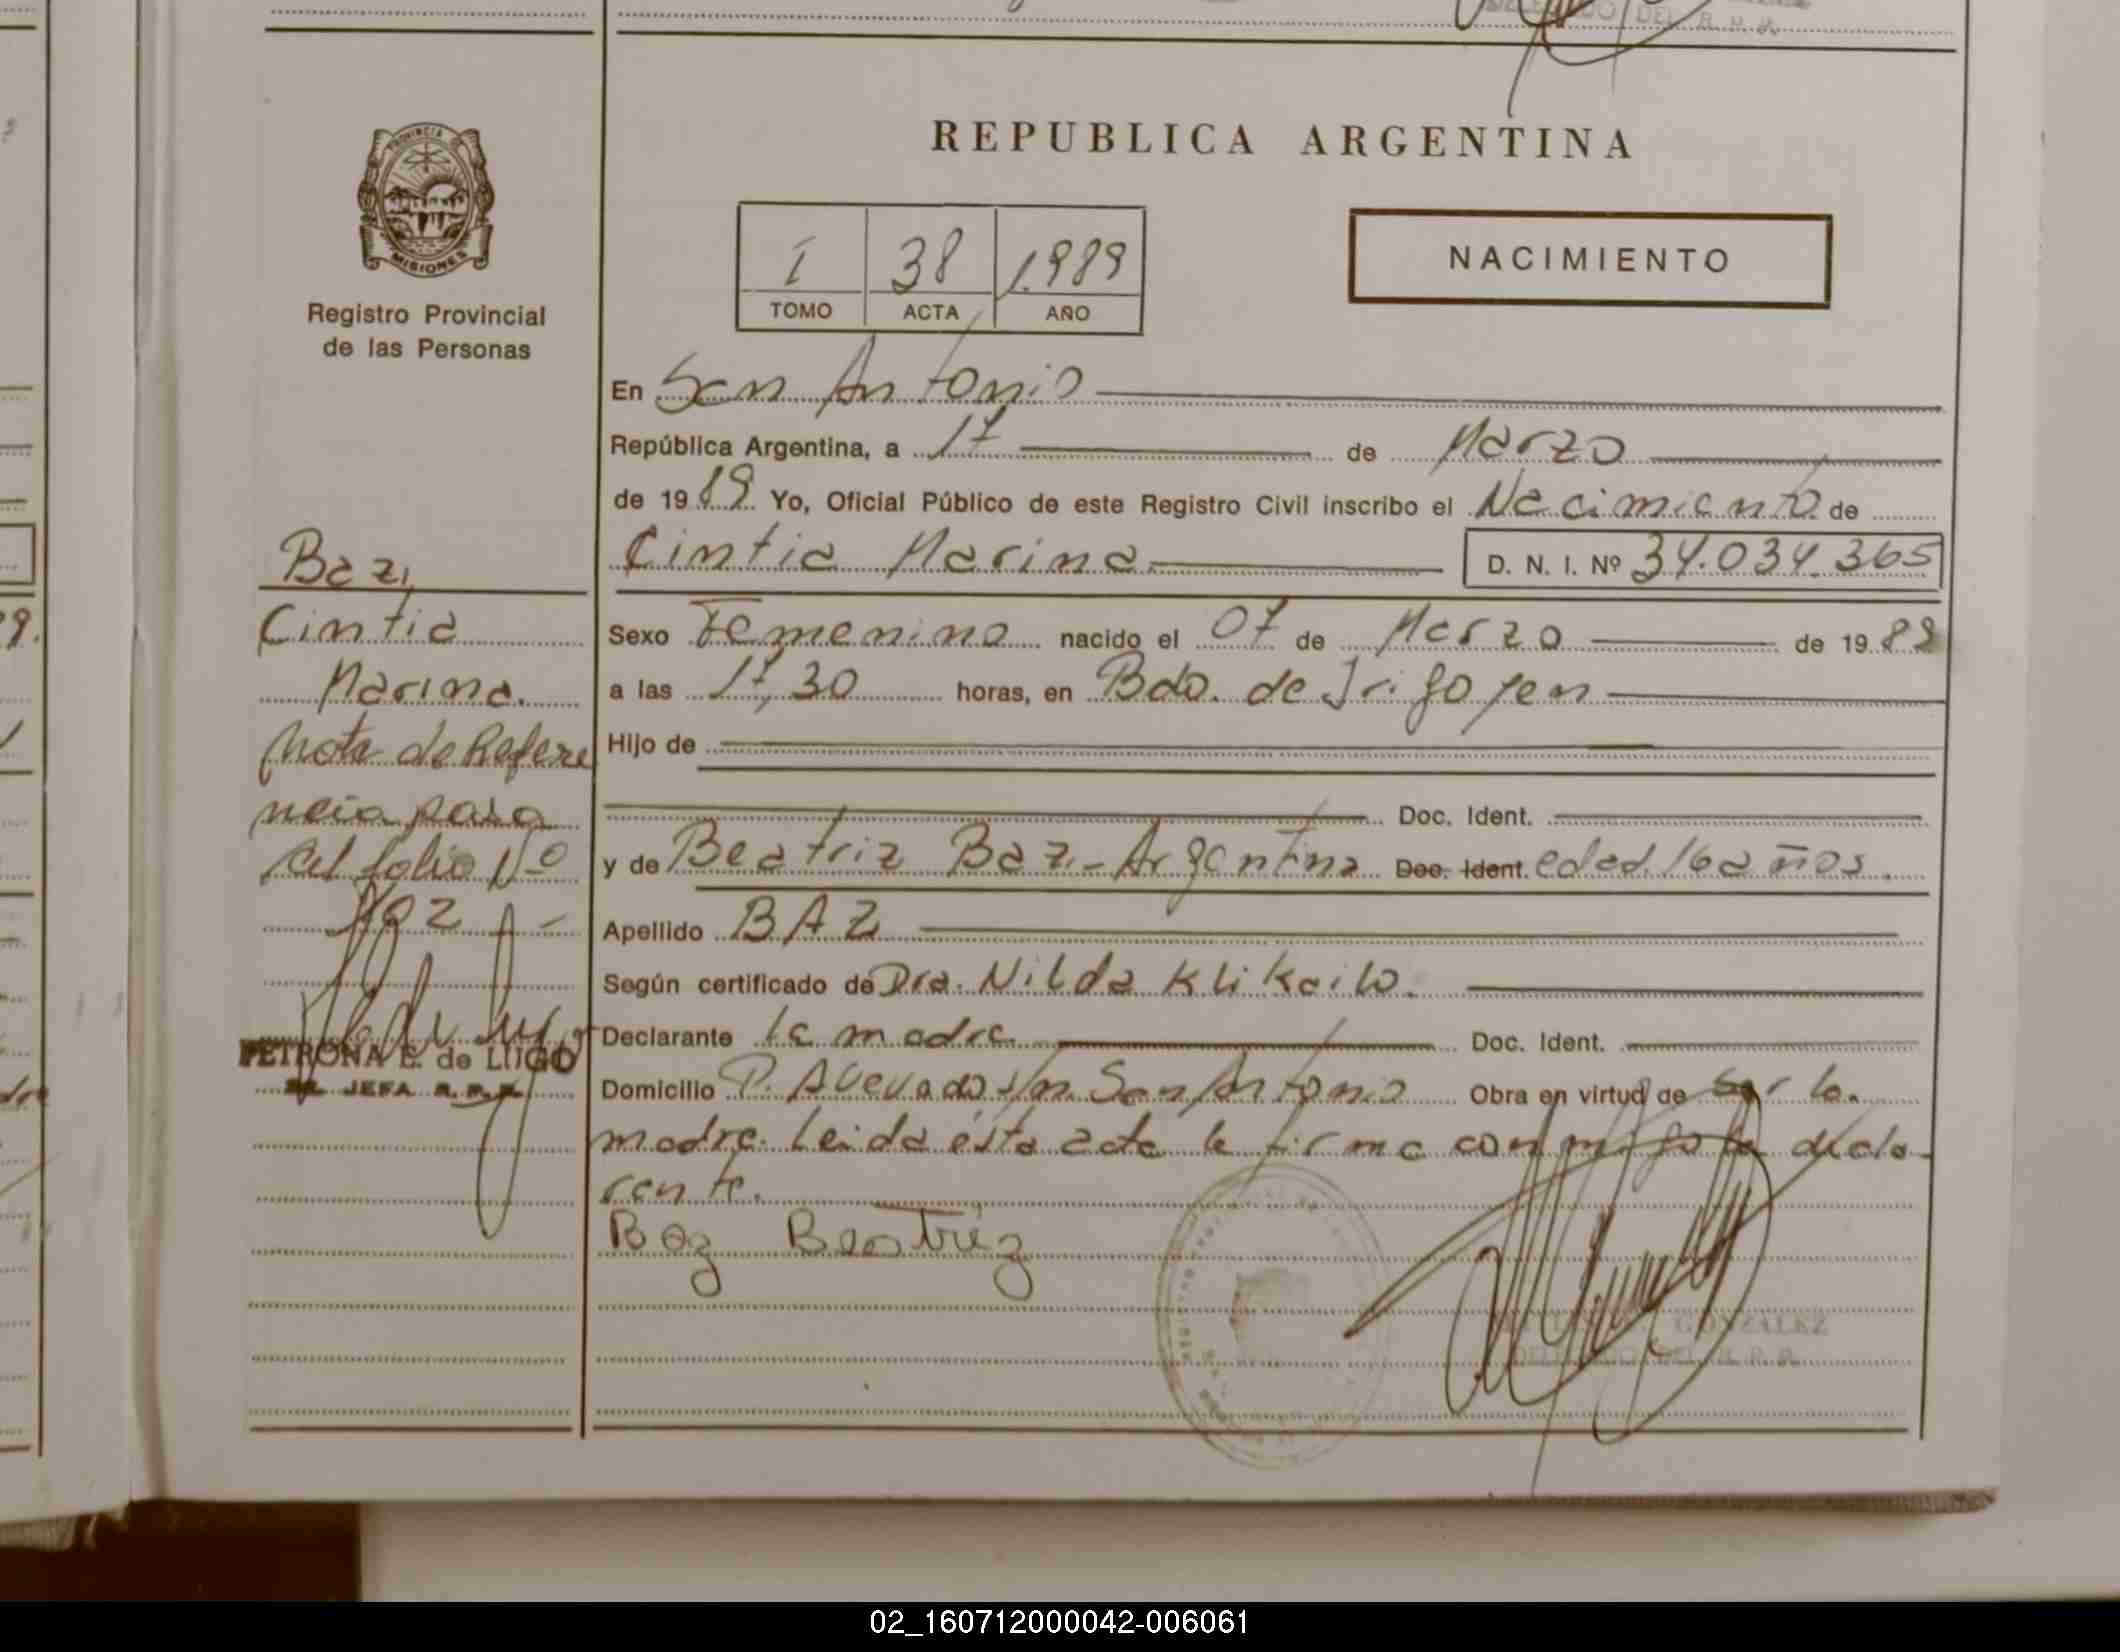 DELEGADO DEL R. P. P.
PROVINCIA
MISIONES
Registro Provincial
de las Personas
REPUBLICA ARGENTINA
I 38 1.989
TOMO ACTA AÑO
NACIMIENTO
En San Antonio
República Argentina, a 17 de Marzo
de 1989 Yo, Oficial Público de este Registro Civil inscribo el Nacimiento de
Cintia Marina D. N. I. Nº 34.034.365
Sexo Femenino nacido el 07 de Marzo de 1989
a las 17,30 horas, en Bdo. de Irigoyen
Hijo de
Doc. Ident.
y de Beatriz Baz - Argentina Doc. Ident. edad 16 años.
Apellido BAZ
Según certificado de Dra. Nilda Klikailo.
Declarante la madre Doc. Ident.
Domicilio P. Alevado s/n. San Antonio Obra en virtud de ser la
madre. Leida ésta acta la firma conmigo la decla-
rante.
Baz Beatriz
Baz,
Cintia
Marina.
Nota de Refere
ncia pasa
al folio Nº
102 -
PETRONA E. de LUGO
JEFA R. P. P.
GONZALEZ
DELEGADO DEL R. P. P.
02_160712000042-006061